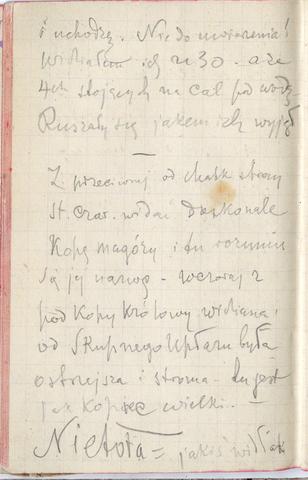 i uchodzą. Nie do uwierzenia!
widziałem ich z 30. a ze
4ch stojących na cal pod wodą.
Ruszały się jakem ich wyjął
—
Z przeciwnej od chatek strony
St. Czar. widać doskonale
Kopę magóry i tu rozumie
się jej nazwę - wczoraj z
pod Kopy Królowy widziana,
od Skupnego Upłazu była
ostrzejsza i stroma - tu jest
jak kopiec wielki. —
Nietota = jakiś widłak